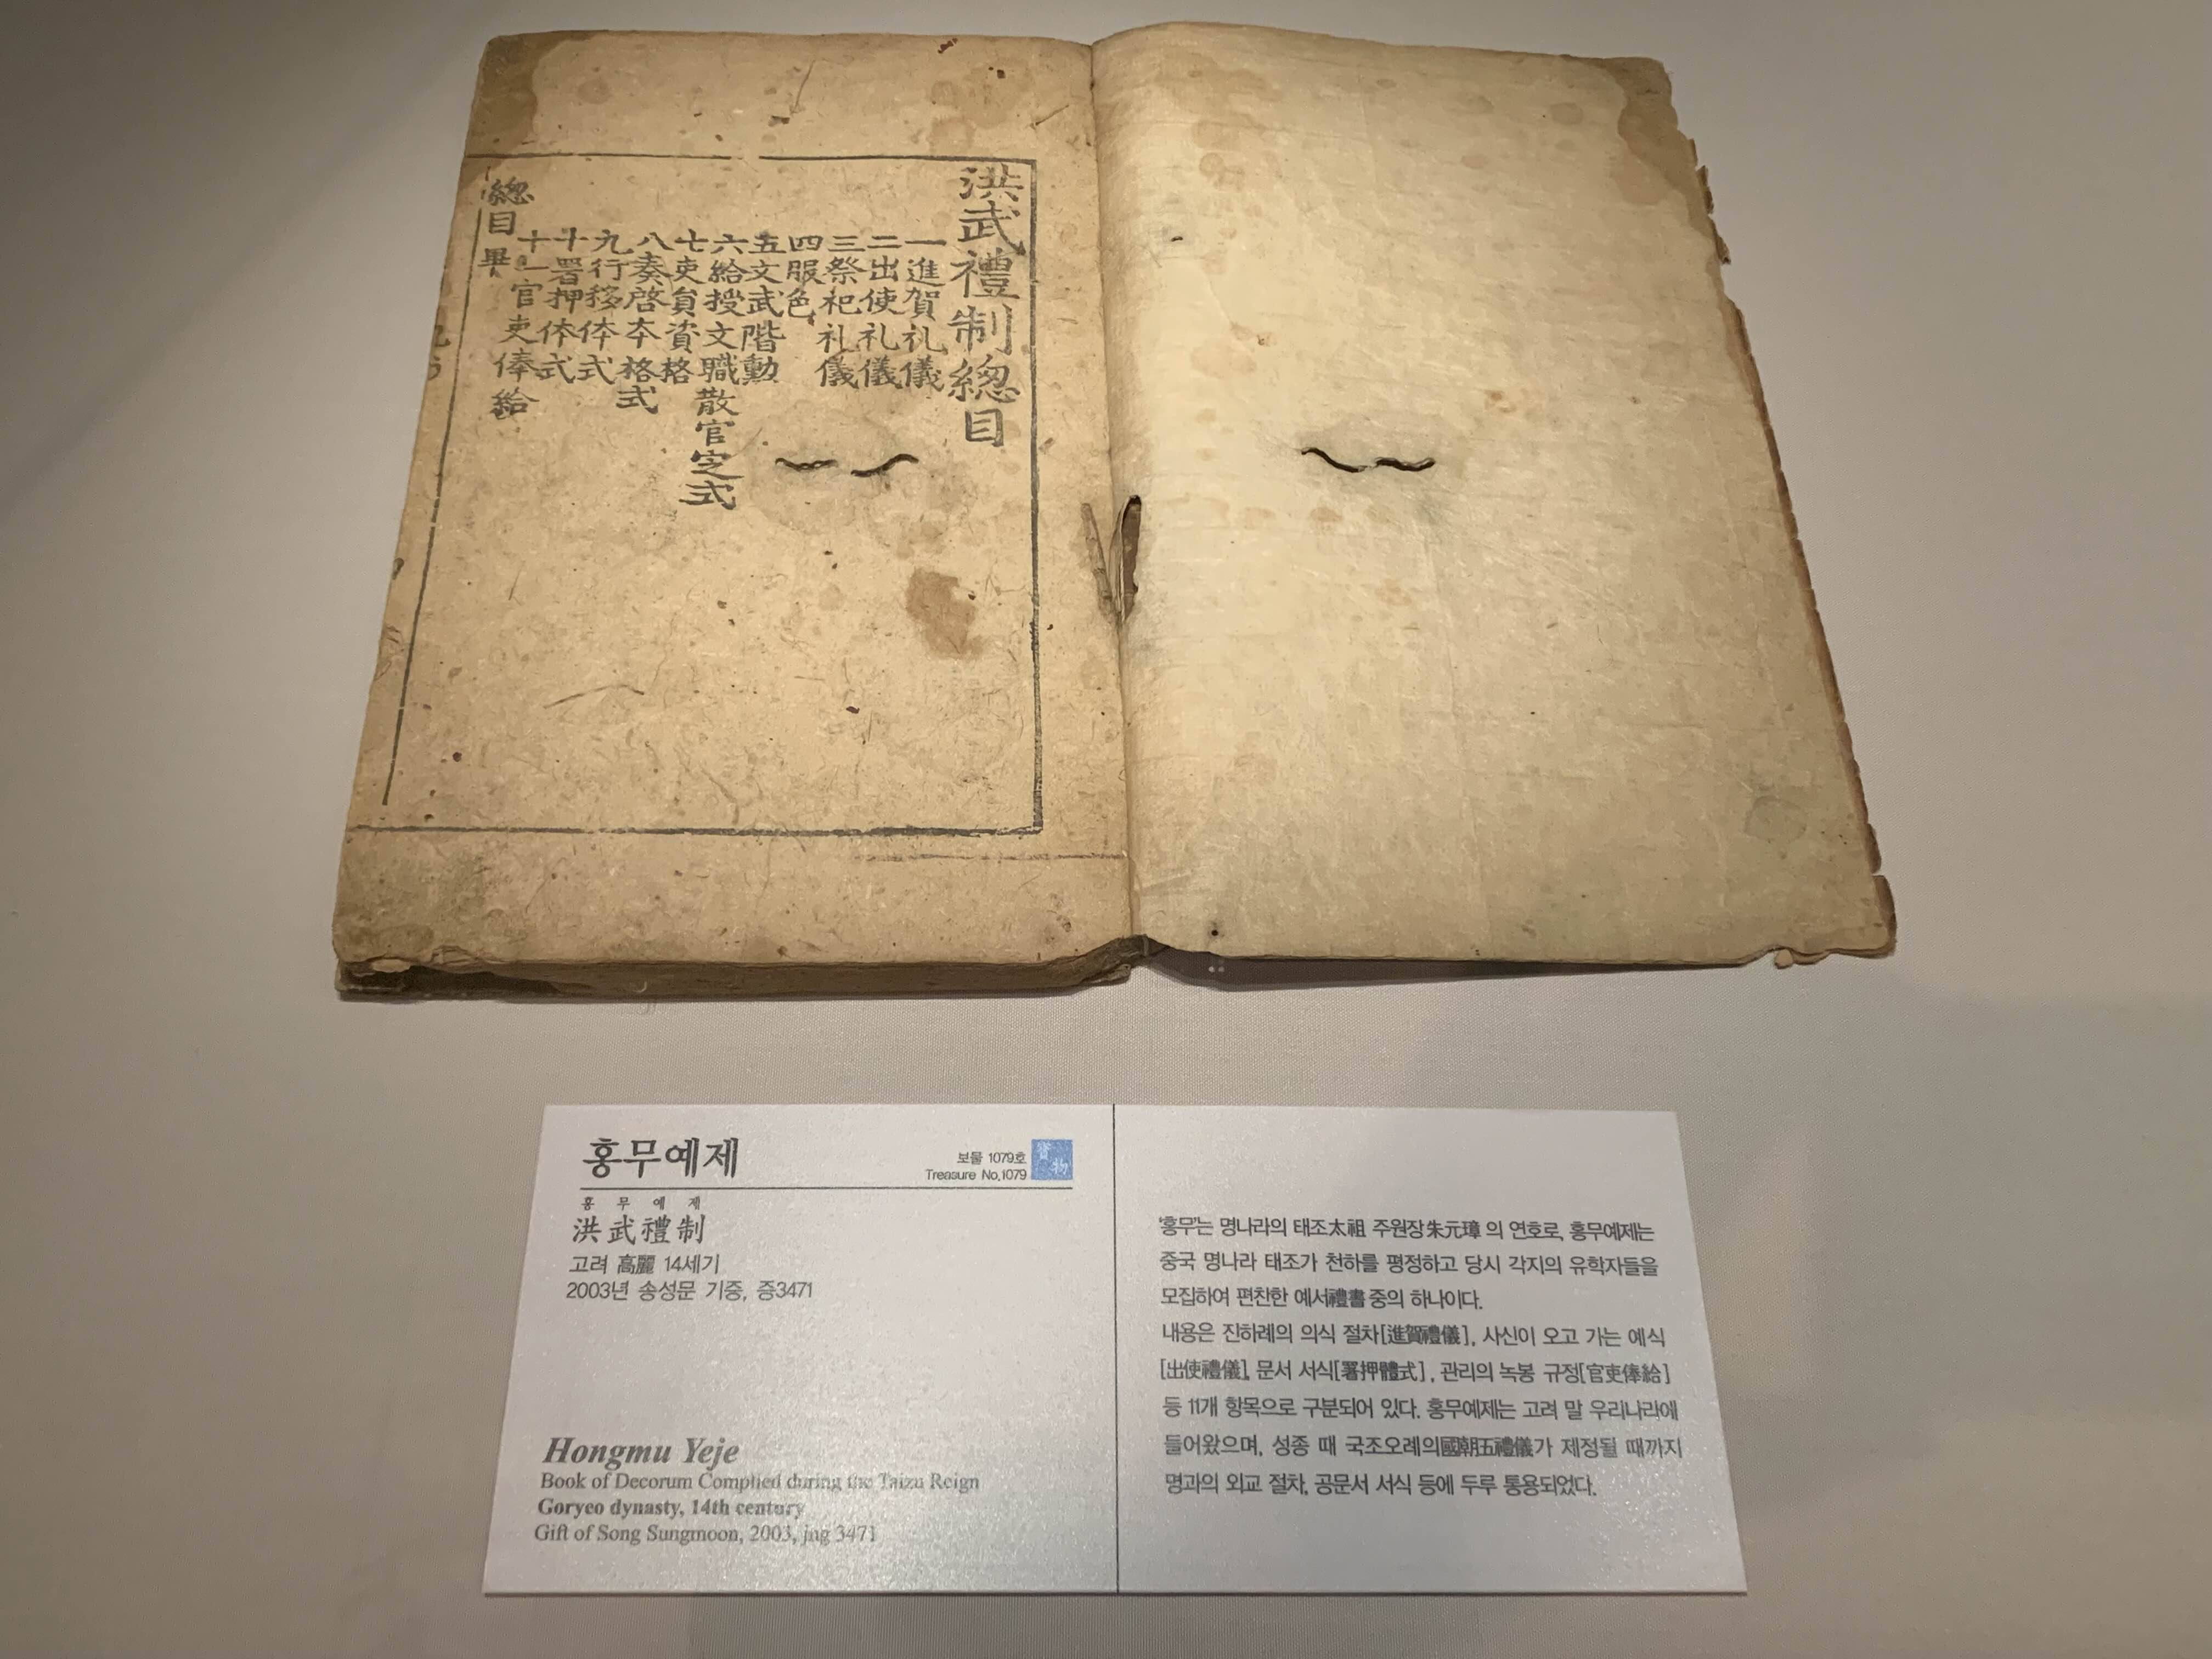 洪武禮制總目
一進賀礼儀
二出使礼儀
三祭祀礼儀
四服色
五文武階勳
六給授文職散官定式
七吏員資格
八奏啓本格式
九行移体式
十署押体式
十一官吏俸給
總目畢
홍무예제
보물 1079호
Treasure No.1079
寶物
홍무예제
洪武禮制
고려 高麗 14세기
2003년 송성문 기증, 증3471
Hongmu Yeje
Book of Decorum Complied during the Taizu Reign
Goryeo dynasty, 14th century
Gift of Song Sungmoon, 2003, jng 3471
'홍무'는 명나라의 태조太祖 주원장朱元璋 의 연호로, 홍무예제는
중국 명나라 태조가 천하를 평정하고 당시 각지의 유학자들을
모집하여 편찬한 예서禮書 중의 하나이다.
내용은 진하례의 의식 절차[進賀禮儀], 사신이 오고 가는 예식
[出使禮儀], 문서 서식[署押體式], 관리의 녹봉 규정[官吏俸給]
등 11개 항목으로 구분되어 있다. 홍무예제는 고려 말 우리나라에
들어왔으며, 성종 때 국조오례의國朝五禮儀가 제정될 때까지
명과의 외교 절차, 공문서 서식 등에 두루 통용되었다.